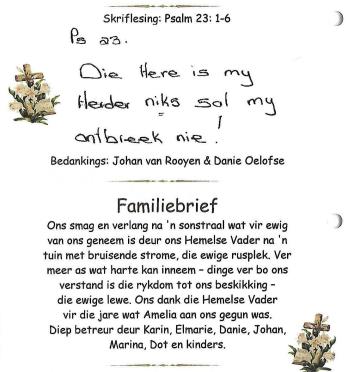 Skriflesing: Psalm 23: 1-6
Ps 23.
Die Here is my
Herder niks sal my
ontbreek nie!
Bedankings: Johan van Rooyen & Danie Oelofse
Familiebrief
Ons smag en verlang na 'n sonstraal wat vir ewig
van ons geneem is deur ons Hemelse Vader na 'n
tuin met bruisende strome, die ewige rusplek. Ver
meer as wat harte kan inneem – dinge ver bo ons
verstand is die rykdom tot ons beskikking –
die ewige lewe. Ons dank die Hemelse Vader
vir die jare wat Amelia aan ons gegun was.
Diep betreur deur Karin, Elmarie, Danie, Johan,
Marina, Dot en kinders.